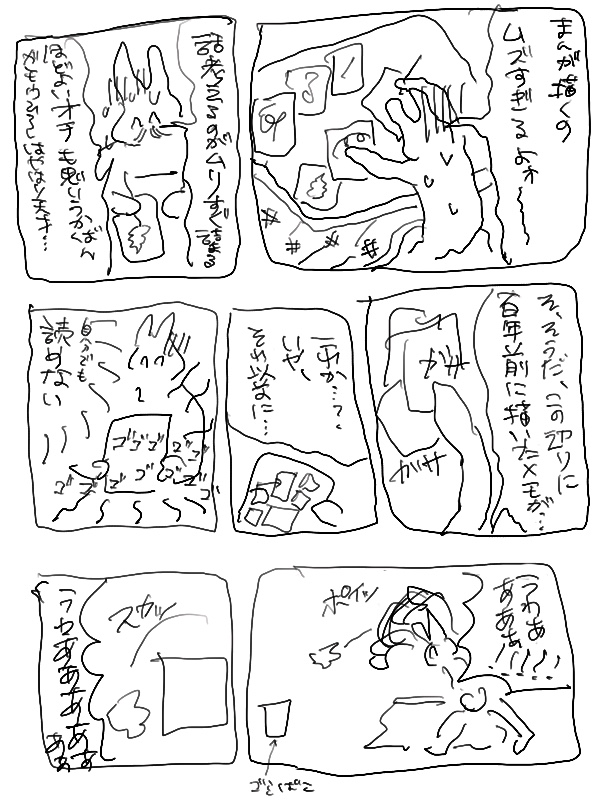 まんが描くの
ムズすぎるよォ
話考えるのがムリすぎる
ほどよいオチも思いうかばん
そ、そうだ、この辺りに
百年前に描いたメモが…
ガサ
ガサ
いや、
それ以前に…
自分でも
読めない
ゴゴゴゴゴゴゴゴ
うわあ
ああぁ
ポイッ
ゴミばこ
スカッ
うわああああ